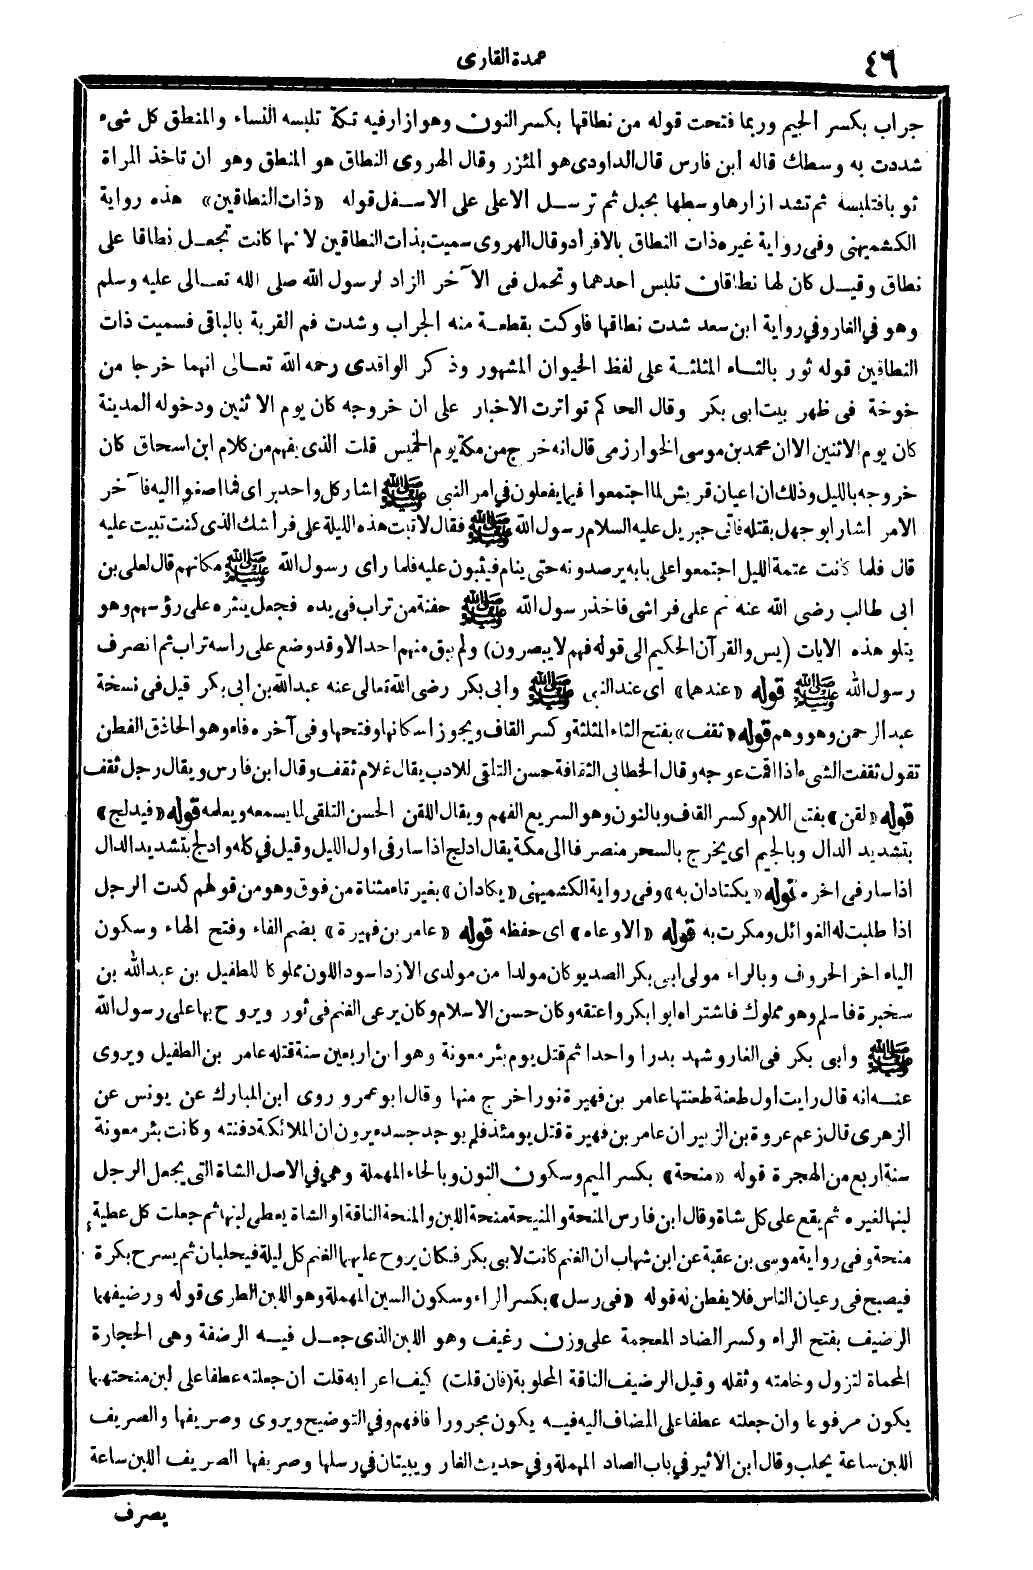 ٤٦
عمدة القارى
جراب بكسر الجيم وربما فتحت قوله من نطاقها بكسر النون وهو ازار فيه تكة تلبسه النساء والمنطق كل شىء
شددت به وسطك قاله ابن فارس قال الداودى هو المئزر وقال الهروى النطاق هو المنطق وهو ان تاخذ المراة
ثوبا فتلبسه ثم تشد ازارها وسطها بحبل ثم ترسل الاعلى على الاسفل قوله «ذات النطاقين» هذه رواية
الكشميهنى وفى رواية غيره ذات النطاق بالافراد وقال الهروى سميت بذات النطاقين لانها كانت تجعل نطاقا على
نطاق وقيل كان لها نطاقان تلبس احدهما وتحمل فى الآخر الزاد لرسول الله صلى الله تعالى عليه وسلم
وهو في الغار وفي رواية ابن سعد شدت نطاقها فاوكت بقطعة منه الجراب وشدت فم القربة بالباقى فسميت ذات
النطاقين قوله ثور بالثاء المثلثة على لفظ الحيوان المشهور وذكر الواقدى رحمه الله تعالى انهما خرجا من
خوخة فى ظهر بيت ابى بكر وقال الحاكم تواترت الاخبار على ان خروجه كان يوم الاثنين ودخوله المدينة
كان يوم الاثنين الا ان محمد بن موسى الخوارزمى قال انه خرج من مكة يوم الخميس قلت الذى يفهم من كلام ابن اسحاق كان
خروجه بالليل وذلك ان اعيان قريش لما اجتمعوا فيما يفعلون في امر النبى ﷺ اشار كل واحد براى فما اصغوا اليه فآخر
الامر أشار ابو جهل بقتله فأتى جبريل عليه السلام رسول الله ﷺ فقال لا تبت هذه الليلة على فراشك الذى كنت تبيت عليه
قال فلما كانت عتمة الليل اجتمعوا على بابه يرصدونه حتى ينام فيثبون عليه فلما راى رسول الله ﷺ مكانهم قال لعلى بن
ابى طالب رضى الله عنه نم على فراشى فاخذ رسول الله ﷺ حفنة من تراب فى يده فجعل ينثره على رؤسهم وهو
يتلو هذه الايات (يس والقرآن الحكيم الى قوله فهم لا يبصرون) ولم يبق منهم احد الا وقد وضع على راسه تراب ثم انصرف
رسول الله ﷺ قوله «عندهما» اى عند النبى ﷺ وابى بكر رضى الله تعالى عنه عبد الله بن ابى بكر قيل فى نسخة
عبد الرحمن وهو وهم قوله «ثقف» بفتح الثاء المثلثة وكسر القاف ويجوز اسكانها وفتحها وفى آخره فاء وهو الحاذق الفطن
تقول ثقفت الشىء اذا اقمت عوجه وقال الخطابى الثقافة حسن التلقى للادب يقال غلام ثقف وقال ابن فارس ويقال رجل ثقف
قوله «لقن» بفتح اللام وكسر القاف وبالنون وهو السريع الفهم ويقال اللقن الحسن التلقى لما يسمعه ويعلمه قوله «فيدلج»
بتشديد الدال وبالجيم اى يخرج بالسحر منصرفا الى مكة يقال ادلج اذا سار فى اول الليل وقيل في كله وادلج بتشديد الدال
اذا سار فى اخره قوله «يكتادان به» وفى رواية الكشميهنى «يكادان» بغير تاء مثناة من فوق وهو من قولهم كدت الرجل
اذا طلبت له الغوائل ومكرت به قوله «الا وعاه» اى حفظه قوله «عامر بن فهيرة» بضم الفاء وفتح الهاء وسكون
الياء اخر الحروف وبالراء مولى ابى بكر الصديق وكان مولدا من مولدى الازد اسود اللون مملوكا للطفيل بن عبد الله بن
سخبرة فاسلم وهو مملوك فاشتراه ابو ابكر واعتقه وكان حسن الاسلام وكان يرعى الغنم فى ثور ويروح بها على رسول الله
ﷺ وابى بكر فى الغار وشهد بدرا واحدا ثم قتل يوم بئر معونة وهو ابن اربعين سنة قتله عامر بن الطفيل ويروى
عنه انه قال رايت اول طعنة طعنتها عامر بن فهيرة نورا خرج منها وقال ابو عمرو روى ابن المبارك عن يونس عن
الزهرى قال زعم عروة بن الزبير ان عامر بن فهيرة قتل يومئذ فلم يوجد جسده يرون ان الملائكة دفنته وكانت بئر معونة
سنة اربع من الهجرة قوله «منحة» بكسر الميم وسكون النون وبالحاء المهملة وهي في الاصل الشاة التى يجعل الرجل
لبنها لغيره ثم يقع على كل شاة وقال ابن فارس المنحة والمنيحة منحة اللبن والمنحة الناقة او الشاة يعطى لبنها ثم جعلت كل عطية
منحة وفى رواية موسى بن عقبة عن ابن شهاب ان الغنم كانت لابى بكر فكان يروح عليهما الغنم كل ليلة فيحلبان ثم يسرح بكرة
فيصبح فى رعيان الناس فلا يفطن له قوله «فى رسل» بكسر الراء وسكون السين المهملة وهو اللبن الطرى قوله ورضيفهما
الرضيف بفتح الراء وكسر الضاد المعجمة على وزن رغيف وهو اللبن الذى جعل فيه الرضفة وهى الحجارة
المحماة لتزول وخامته وثقله وقيل الرضيف الناقة المحلوبة (فان قلت) كيف اعرابه قلت ان جعلته عطفا على لبن منحتهما
يكون مرفوعا وان جعلته عطفا على المضاف اليه فيه يكون مجرورا فافهم وفي التوضيح ويروى وصريفها والصريف
اللبن ساعة يحلب وقال ابن الاثير في باب الصاد المهملة وفي حديث الغار ويبيتان في رسلها وصريفها الصريف اللبن ساعة
يصرف